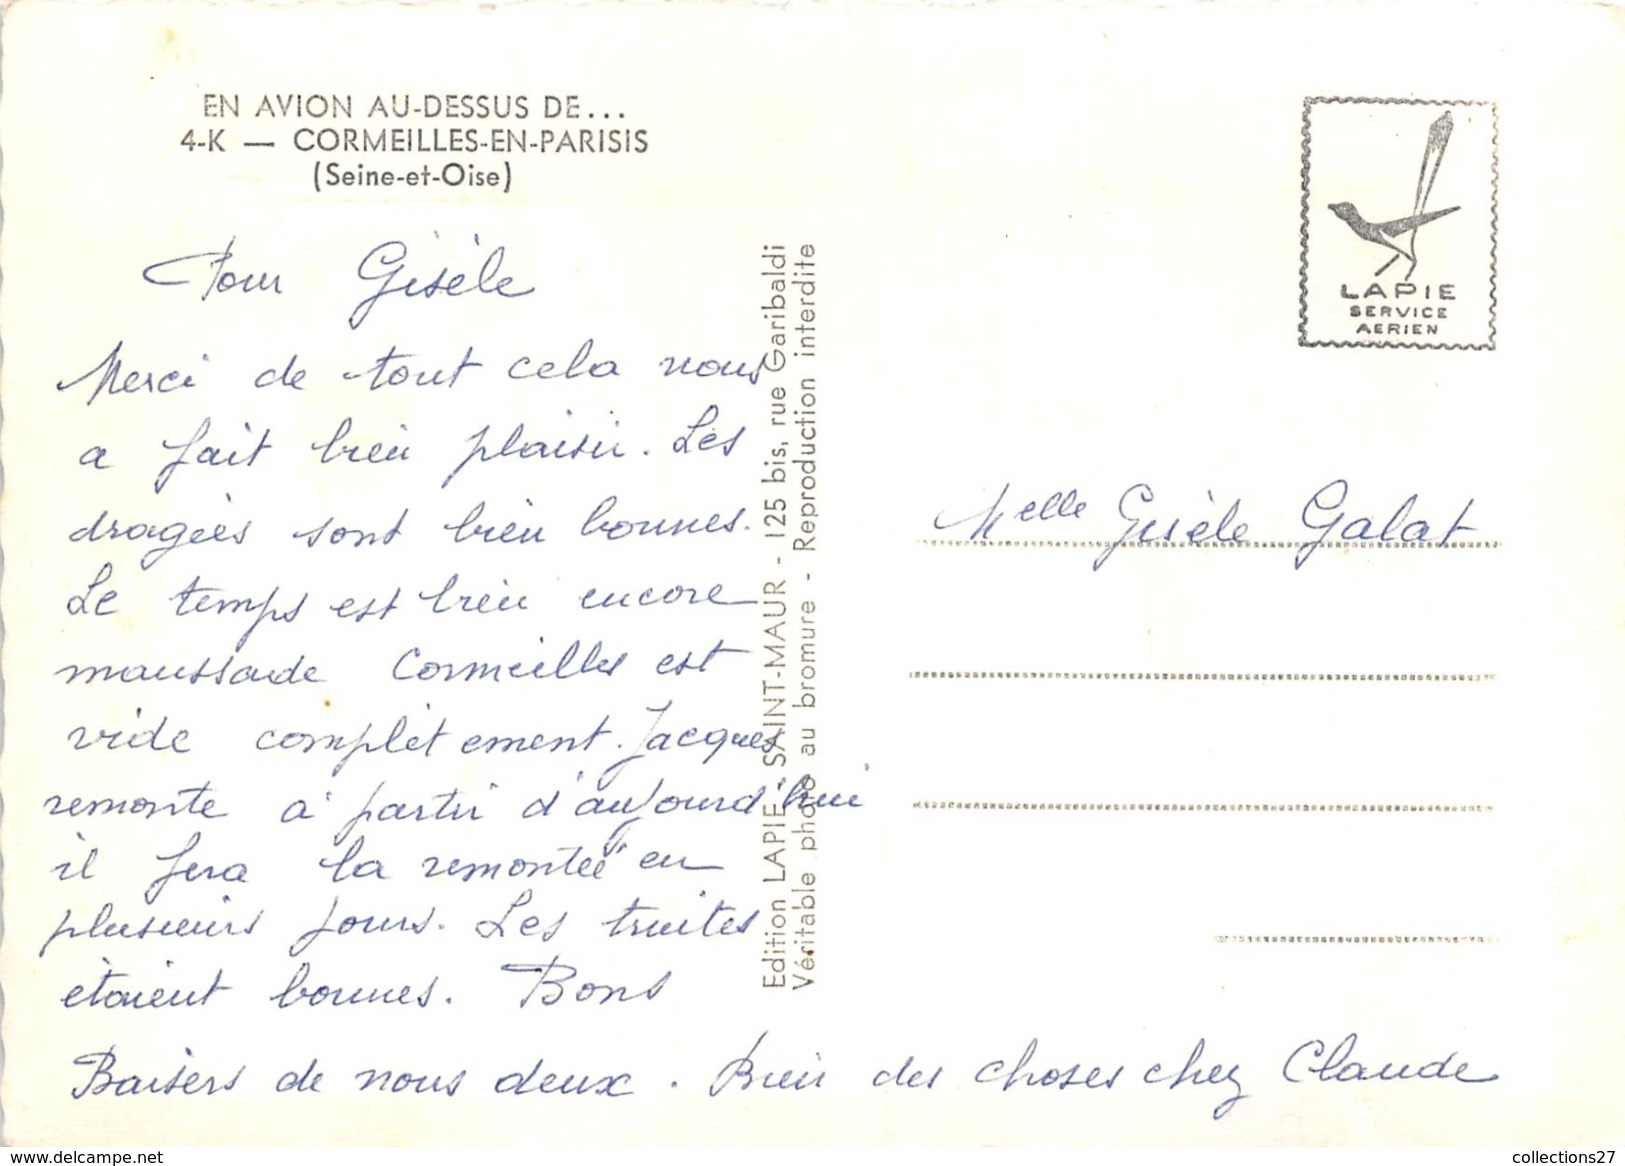 EN AVION AU-DESSUS DE...
4-K — CORMEILLES-EN-PARISIS
(Seine-et-Oise)
Pour Gisèle
Merci de tout cela nous
a fait bien plaisir. Les
dragées sont bien bonnes.
Le temps est bien encore
maussade Cormeilles est
vide complètement. Jacques
remonte à partir d'aujourd'hui
il fera "la remontée" en
plusieurs jours. Les truites
étaient bonnes. Bons
Baisers de nous deux. Bien des choses chez Claude
Edition LAPIE, SAINT-MAUR - 125 bis, rue Garibaldi
Véritable photo au bromure - Reproduction interdite
LAPIE
SERVICE
AERIEN
Melle Gisèle Galat
www.delcampe.net
collections27